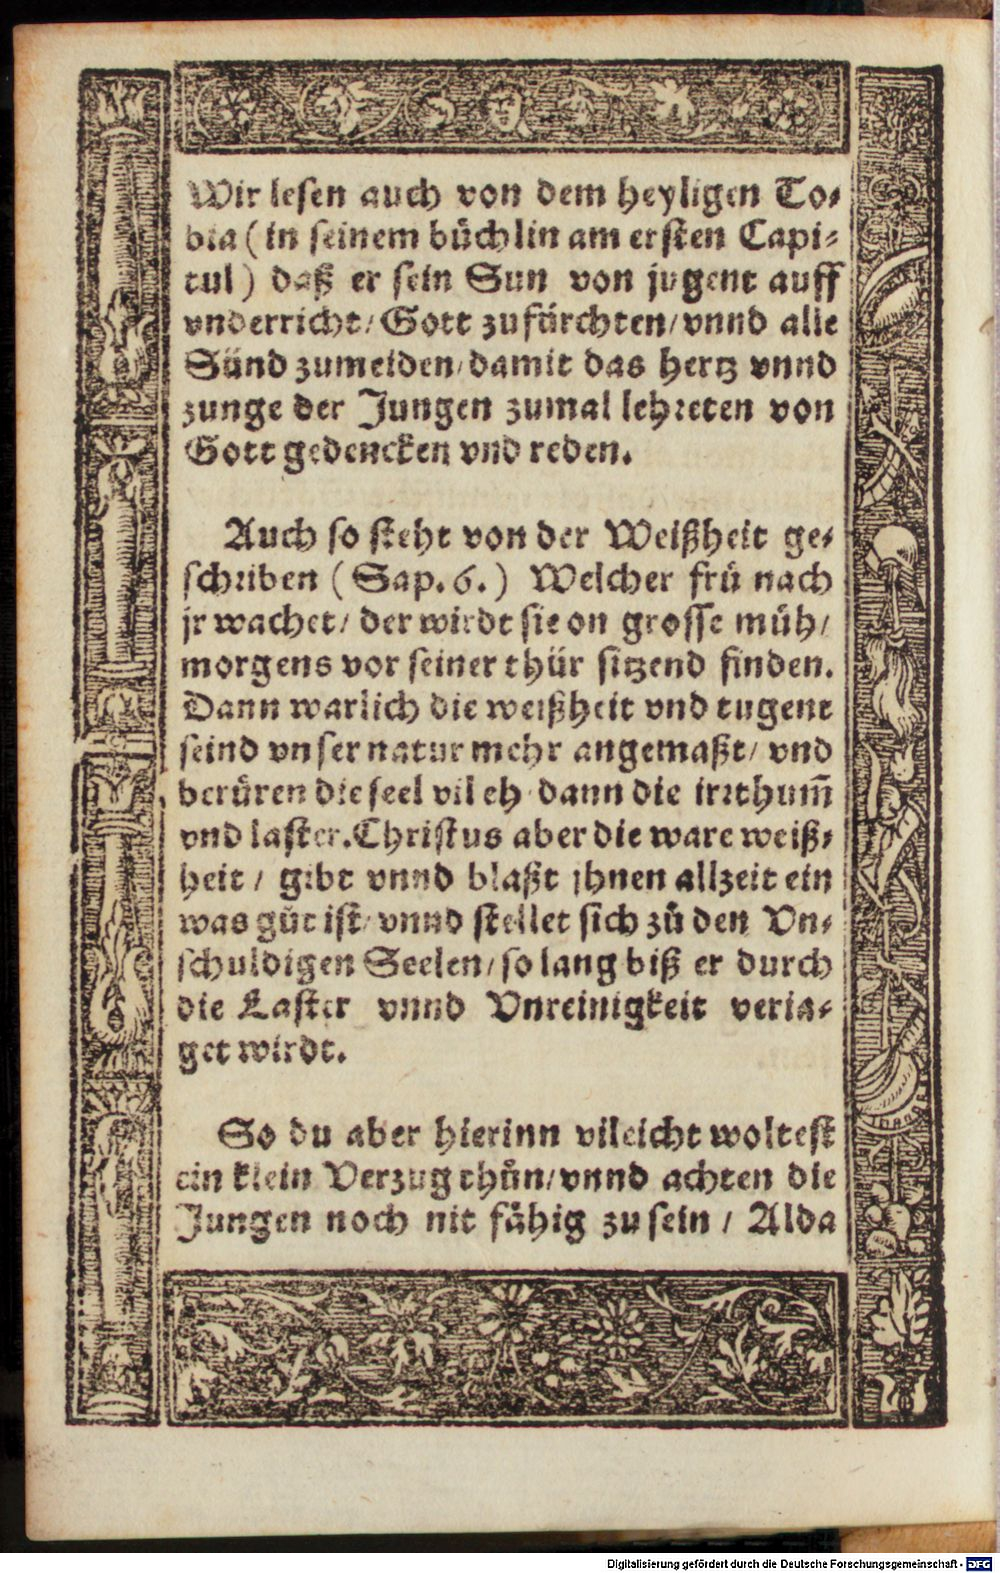 Wir lesen auch von dem heyligen To⸗
bia (in seinem büchlin am ersten Capi⸗
tul) daß er sein Sun von jugent auff
vnderricht / Gott zufürchten / vnnd alle
Sünd zumeiden / damit das hertz vnnd
zunge der Jungen zumal lehreten von
Gott gedencken vnd reden.
Auch so steht von der Weißheit ge⸗
schriben (Sap. 6.) Welcher frü nach
jr wachet / der wirdt sie on grosse müh /
morgens vor seiner thür sitzend finden.
Dann warlich die weißheit vnd tugent
seind vnser natur mehr angemaßt / vnd
berüren die seel vil eh dann die irrthum̃
vnd laster. Christus aber die ware weiß⸗
heit / gibt vnnd blaßt jhnen allzeit ein
was gůt ist / vnnd stellet sich zů den Vn⸗
schuldigen Seelen / so lang biß er durch
die Laster vnnd Vnreinigkeit veria⸗
get wirdt.
So du aber hierinn vileicht woltest
ein klein Verzug thůn / vnnd achten die
Jungen noch nit fähig zu sein / Alda
Digitalisierung gefördert durch die Deutsche Forschungsgemeinschaft - DFG